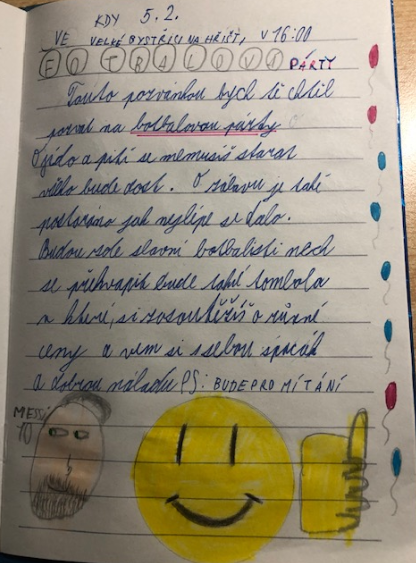 KDY 5.2.
VE VELKÉ BYSTŘICI NA HŘIŠTI, V 16:00
FOTBALOVÁ PÁRTY
Touto pozvánkou bych tě chtěl
pozvat na fotbalovou párty
O jídlo a pití se nemusíš starat
všeho bude dost. O zábavu je také
postaráno jak nejlépe se dalo.
Budou zde slavní fotbalisti nech
se překvapit bude také tombola
v které si zasoutěžíš o různé
ceny a vem si sebou spacák
a dobrou náladu PS: BUDE PROMÍTÁNÍ
MESSI
10